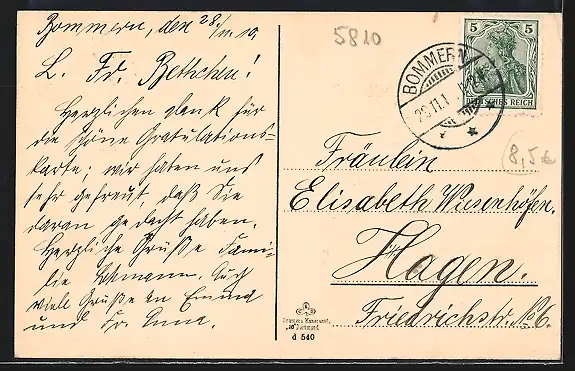 Bommern, den 28./XI. 10.
L. Frl. Bethchen!
Herzlichen Dank für
die schöne Gratulations-
karte; wir haben uns
sehr gefreut, daß Sie
daran gedacht haben.
Herzliche Grüße Fami-
lie Lohmann. Auch
viele Grüße an Emma
und Fr. Anna.
5810
BOMMERN
5 5
DEUTSCHES REICH
8,5€
Fräulein
Elisabeth Wiesenhöfer.
Hagen.
Friedrichstr. No 6.
Dortmund
d 540